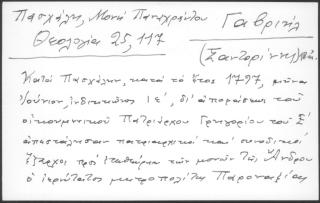 Πασχάλη, Μονή Παναχράντου Γαβριήλ
Θεολογία 25, 117
(Σαντορίνης)
Κατά Πασχάλην, κατά τό ἔτος 1797, μῆνα
Ἰούνιον, ἰνδικτιῶνος ΙΕ', δι' ἀποφάσεως τοῦ
οἰκουμενικοῦ Πατριάρχου Γρηγορίου τοῦ Ε'
ἀπεστάλησαν πατριαρχικοί καί συνοδικοί
ἔξαρχοι πρός ἐκκαθάρισιν τῶν μονῶν τῆς Ἄνδρου
ὁ ἱερώτατος μητροπολίτης Παροναξίας